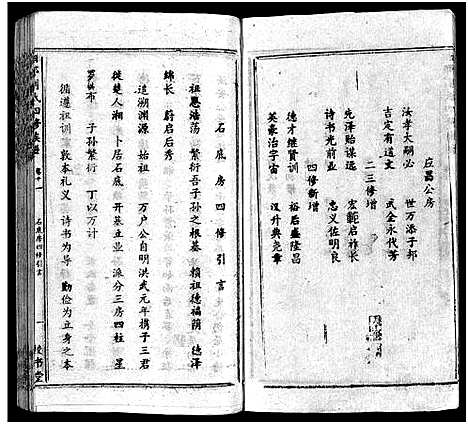 应昌公房
汝孝大朋必 世万添子邦
吉定有道文 武金永代芳
二三修增
先泽贻谋远 宏启祚长
诗书光前业 忠义佐明良
德才继贤训 裕后盛隆昌
四修新增
英豪治宇宙 汉升典尧章
石底房四修引言
祖恩浩荡 繁衍吾子孙之根基 赖祖德福荫 德泽
绵长 蔚启后秀
追溯渊源 始祖 万户公自明洪武元年携子三君
徙楚人湘 卜居石底 开基立业 派分三房四柱 星
罗棋布 子孙繁衍
循遵祖训 敦本礼义 诗书为导 勤俭为立身之本
四修族谱
石底房四修引言
一